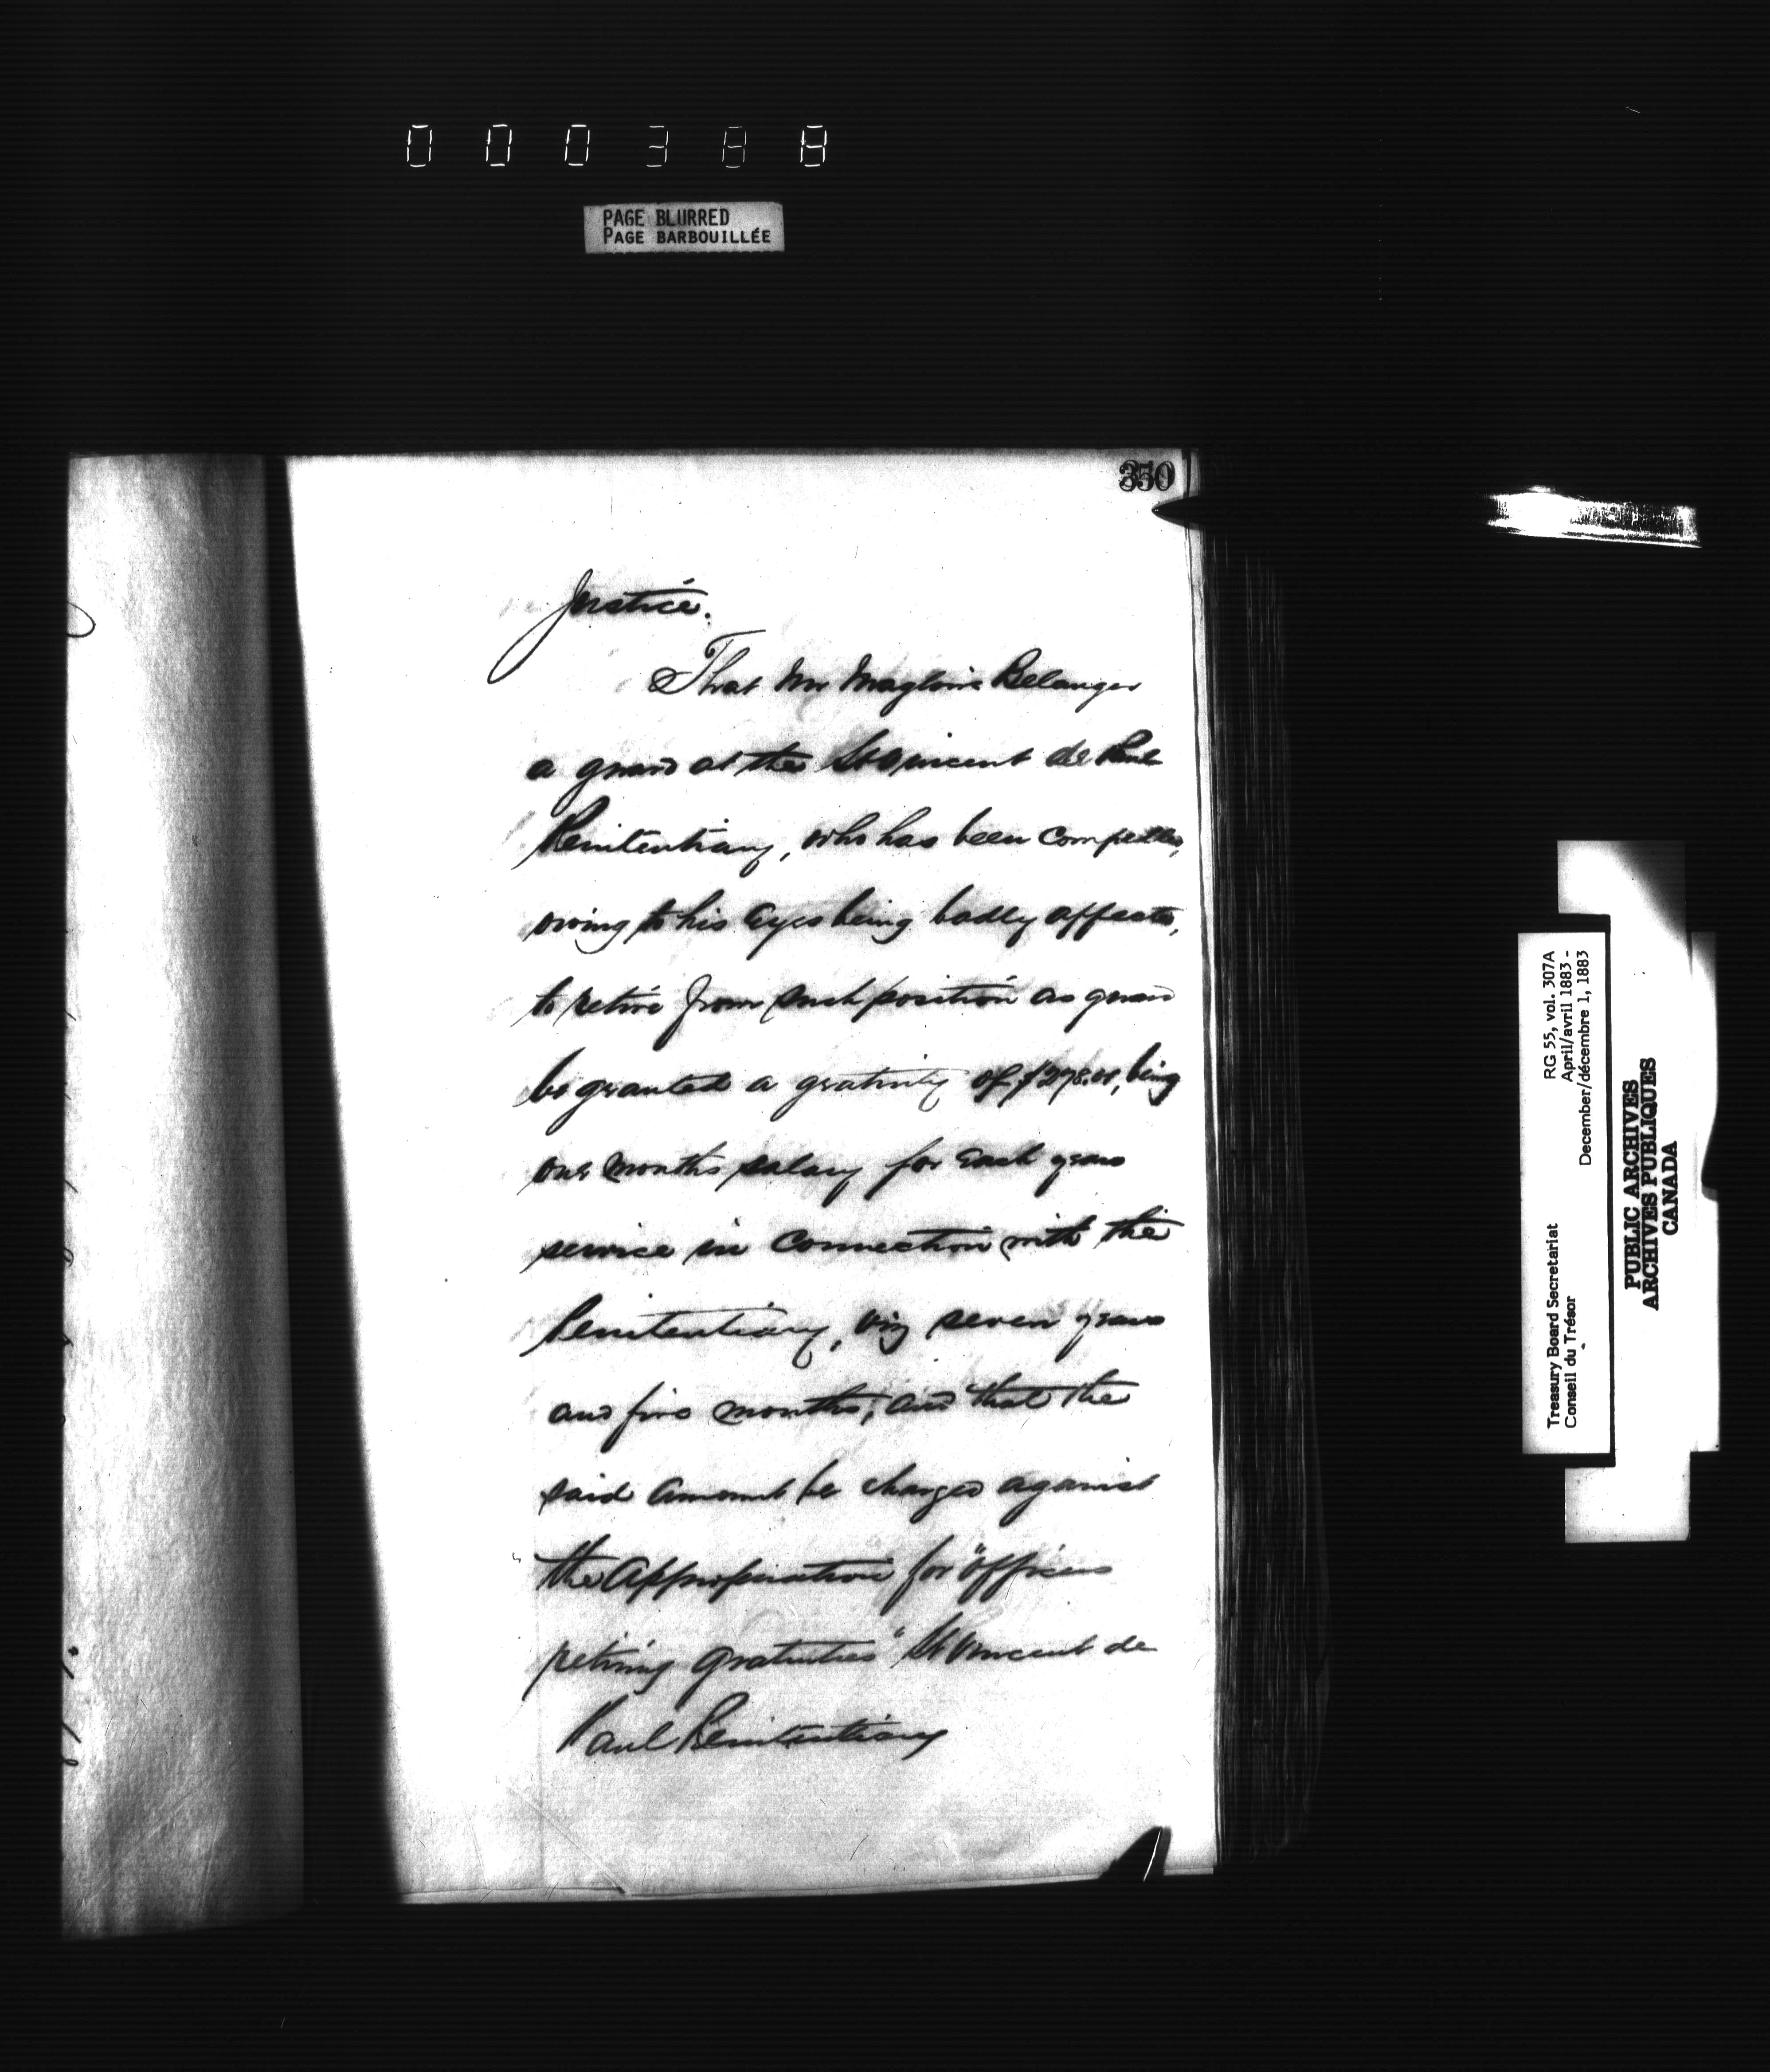 000388
PAGE BLURRED
PAGE BARBOUILLÉE
350
Justice.
That Mr Magloire Belanger
a guard at the St Vincent de Paul
Penitentiary, who has been compelled,
owing to his eyes being badly affected,
to retire from such position as guard
be granted a gratuity of $278.01, being
one months salary for each years
service in connection with the
Penitentiary, viz seven years
and five months; and that the
said amount be charged against
the Appropriation for "officers
retiring gratuities" St Vincent de
Paul Penitentiary
Treasury Board Secretariat RG 55, vol. 307A
Conseil du Trésor April/avril 1883 -
December/décembre 1, 1883
PUBLIC ARCHIVES
ARCHIVES PUBLIQUES
CANADA